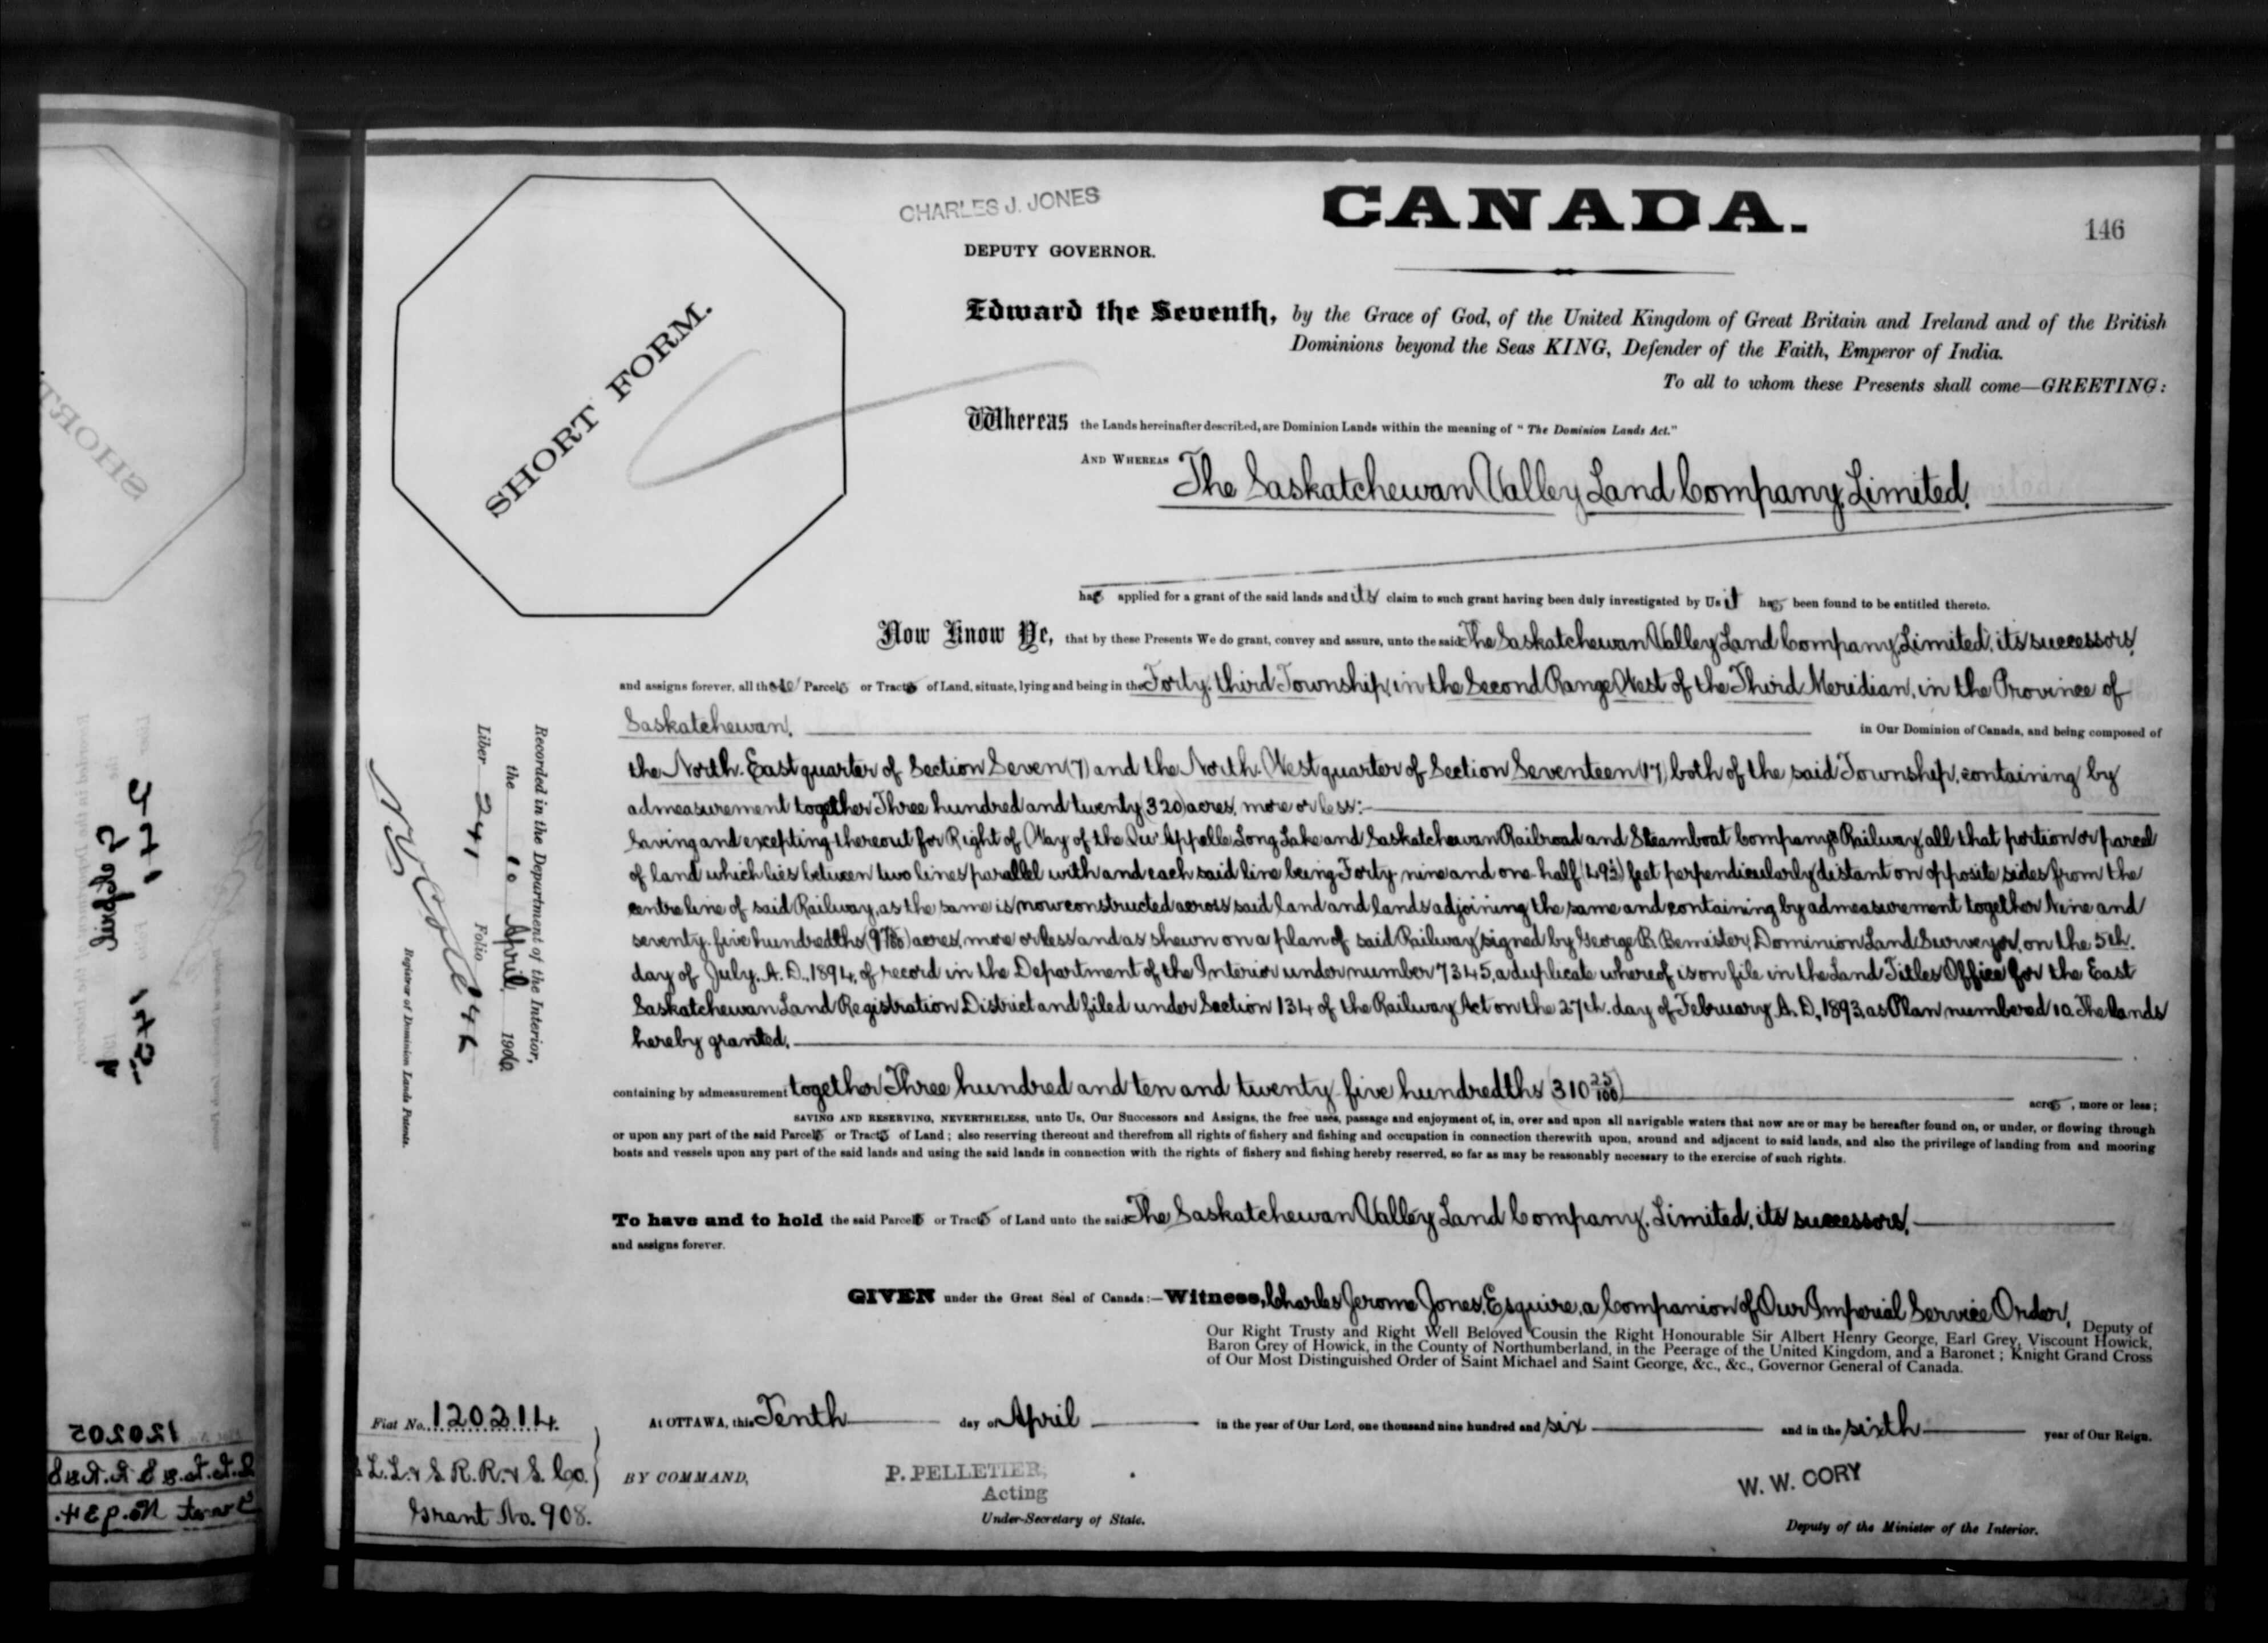 CHARLES J. JONES
CANADA.
146
DEPUTY GOVERNOR.
SHORT FORM.
Edward the Seventh, by the Grace of God, of the United Kingdom of Great Britain and Ireland and of the British
Dominions beyond the Seas KING, Defender of the Faith, Emperor of India.
To all to whom these Presents shall come—GREETING:
Whereas the Lands hereinafter described, are Dominion Lands within the meaning of "The Dominion Lands Act."
AND WHEREAS The Saskatchewan Valley Land Company, Limited,
has applied for a grant of the said lands and its claim to such grant having been duly investigated by Us it has been found to be entitled thereto.
Now Know Ye, that by these Presents We do grant, convey and assure, unto the said The Saskatchewan Valley Land Company, Limited, its successors,
and assigns forever, all those Parcels or Tracts of Land, situate, lying and being in the Forty-third Township, in the Second Range West of the Third Meridian, in the Province of
Saskatchewan, in Our Dominion of Canada, and being composed of
the North-East quarter of Section Seven (7) and the North-West quarter of Section Seventeen (17) both of the said Township, containing by
admeasurement together Three hundred and twenty (320) acres, more or less:-
Saving and excepting thereout for Right of Way of the Qu'Appelle Long Lake and Saskatchewan Railroad and Steamboat Company's Railway all that portion or parcel
of land which lies between two lines parallel with and each said line being Forty-nine and one-half (49½) feet perpendicularly distant on opposite sides from the
centre line of said Railway, as the same is now constructed across said land and lands adjoining the same and containing by admeasurement together Nine and
seventy-five hundredths (9 75/100) acres, more or less and as shewn on a plan of said Railway signed by George B. Bemister, Dominion Land Surveyor, on the 5th.
day of July, A.D., 1894, of record in the Department of the Interior under number 7345, a duplicate whereof is on file in the Land Titles Office for the East
Saskatchewan Land Registration District and filed under Section 134 of the Railway Act on the 27th. day of February A.D., 1893, as Plan numbered 10. The lands
hereby granted,
containing by admeasurement together Three hundred and ten and twenty-five hundredths (310 25/100)
acres, more or less;
SAVING AND RESERVING, NEVERTHELESS, unto Us, Our Successors and Assigns, the free uses, passage and enjoyment of, in, over and upon all navigable waters that now are or may be hereafter found on, or under, or flowing through
or upon any part of the said Parcels or Tracts of Land; also reserving thereout and therefrom all rights of fishery and fishing and occupation in connection therewith upon, around and adjacent to said lands, and also the privilege of landing from and mooring
boats and vessels upon any part of the said lands and using the said lands in connection with the rights of fishery and fishing hereby reserved, so far as may be reasonably necessary to the exercise of such rights.
To have and to hold the said Parcels or Tracts of Land unto the said The Saskatchewan Valley Land Company, Limited, its successors,
and assigns forever.
GIVEN under the Great Seal of Canada:—Witness, Charles Jerome Jones, Esquire, a Companion of Our Imperial Service Order, Deputy of
Our Right Trusty and Right Well Beloved Cousin the Right Honourable Sir Albert Henry George, Earl Grey, Viscount Howick,
Baron Grey of Howick, in the County of Northumberland, in the Peerage of the United Kingdom, and a Baronet; Knight Grand Cross
of Our Most Distinguished Order of Saint Michael and Saint George, &c., &c., Governor General of Canada.
At OTTAWA, this Tenth day of April in the year of Our Lord, one thousand nine hundred and six and in the sixth year of Our Reign.
BY COMMAND,
P. PELLETIER,
Acting
Under-Secretary of State.
W. W. CORY
Deputy of the Minister of the Interior.
Fiat No. 120214.
L.L. & S. R.R. & S. Co.
Grant No. 908.
Recorded in the Department of the Interior,
the 10 April, 1906
Liber 241 Folio 146
Registrar of Dominion Lands Patents.
SHORT
120205